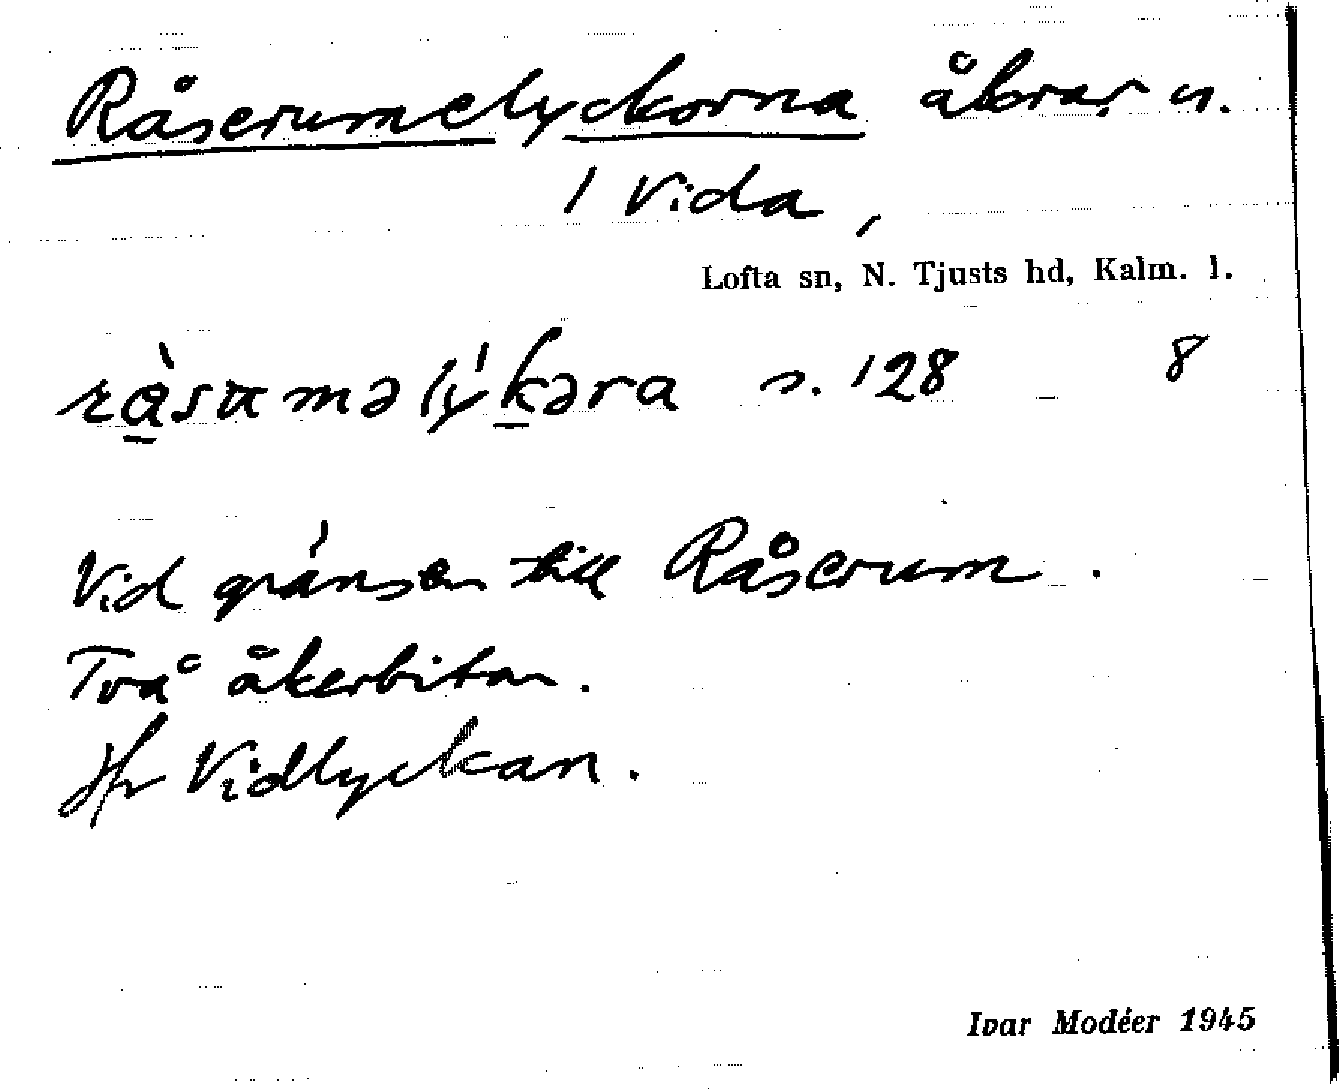 Råserumelyckorna åkrar u.
1 Vida,
Lofta sn, N. Tjusts hd, Kalm. l.
s. 128 8
Vid gränsen till Råserum.
Två åkerbitar.
Jfr Vidlyckan.
Ivar Modéer 1945